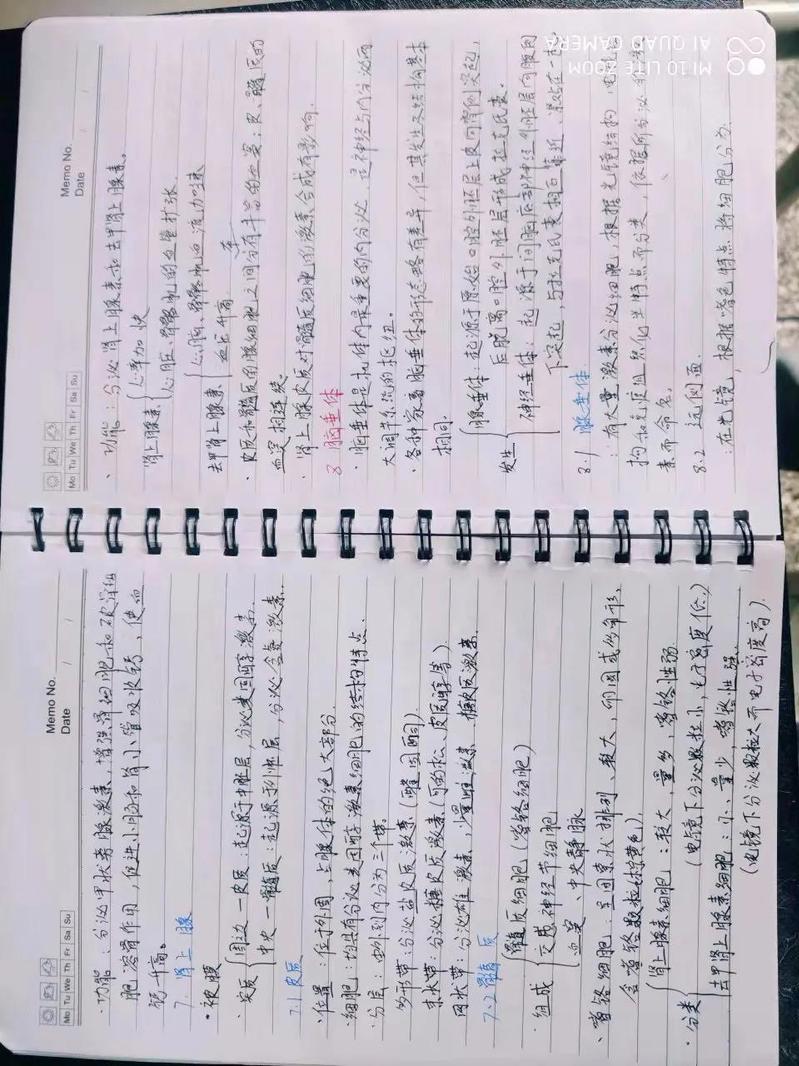 Memo No.
Date
Mo Tu We Th Fr Sa Su
·功能：分泌甲状旁腺激素，增强骨细胞和破骨细
胞溶骨作用，促进小肠和肾小管吸收钙，使血
钙升高。
7. 肾上腺
·被膜
·实质 周边—皮质：起源于中胚层，分泌类固醇激素
中央—髓质：起源于外胚层，分泌含氮激素
7.1 皮质
·位置：位于外周，占腺体的绝大部分
·细胞：均具有分泌类固醇激素细胞的结构特点
·分层：由外到内分为三个带。
多形带：分泌盐皮质激素（醛固酮）
束状带：分泌糖皮质激素（可的松、皮质醇等）
网状带：分泌雄激素、少量雌激素、糖皮质激素
7.2 髓质
·组成 髓质细胞（嗜铬细胞）
交感神经节细胞
血窦、中央静脉
·嗜铬细胞：呈团索状排列，较大，卵圆或多角形，
含嗜铬颗粒（棕黄色）
·分类 肾上腺素细胞：较大，量多，嗜铬性弱
（电镜下分泌颗粒小，电子密度低）
去甲肾上腺素细胞：小、量少，嗜铬性强
（电镜下分泌颗粒大而电子密度高）
Memo No.
Date
Mo Tu We Th Fr Sa Su
·功能：分泌肾上腺素和去甲肾上腺素。
肾上腺素 心率加快
心脏、骨骼肌的血管扩张
去甲肾上腺素 血压升高
心、脑、骨骼肌血流加速
·皮质和髓质的腺细胞之间分布丰富的血窦；皮、髓质的
血窦相连续。
·肾上腺皮质对髓质细胞的激素合成有影响。
8 脑垂体
·脑垂体是机体内最重要的内分泌，是神经与内分泌两
大调节系统的枢纽。
·各种家畜脑垂体的形态略有差异，但其发生及结构基本
相同。
发生 腺垂体：起源于原始口腔外胚层上皮向背侧突起，
后脱离口腔外胚层形成拉克氏囊。
神经垂体：起源于间脑底部神经外胚层向腹侧
下突起，与拉克氏囊相互靠近
8.1 腺垂体
：有大量激素分泌细胞，根据光镜结构、
构和免疫组织化学特点而分类，依据所分泌的激
素而命名。
8.2 远侧部
：在光镜，根据嗜色特点将细胞分为
MI 10 LITE ZOOM
AI QUAD CAMERA